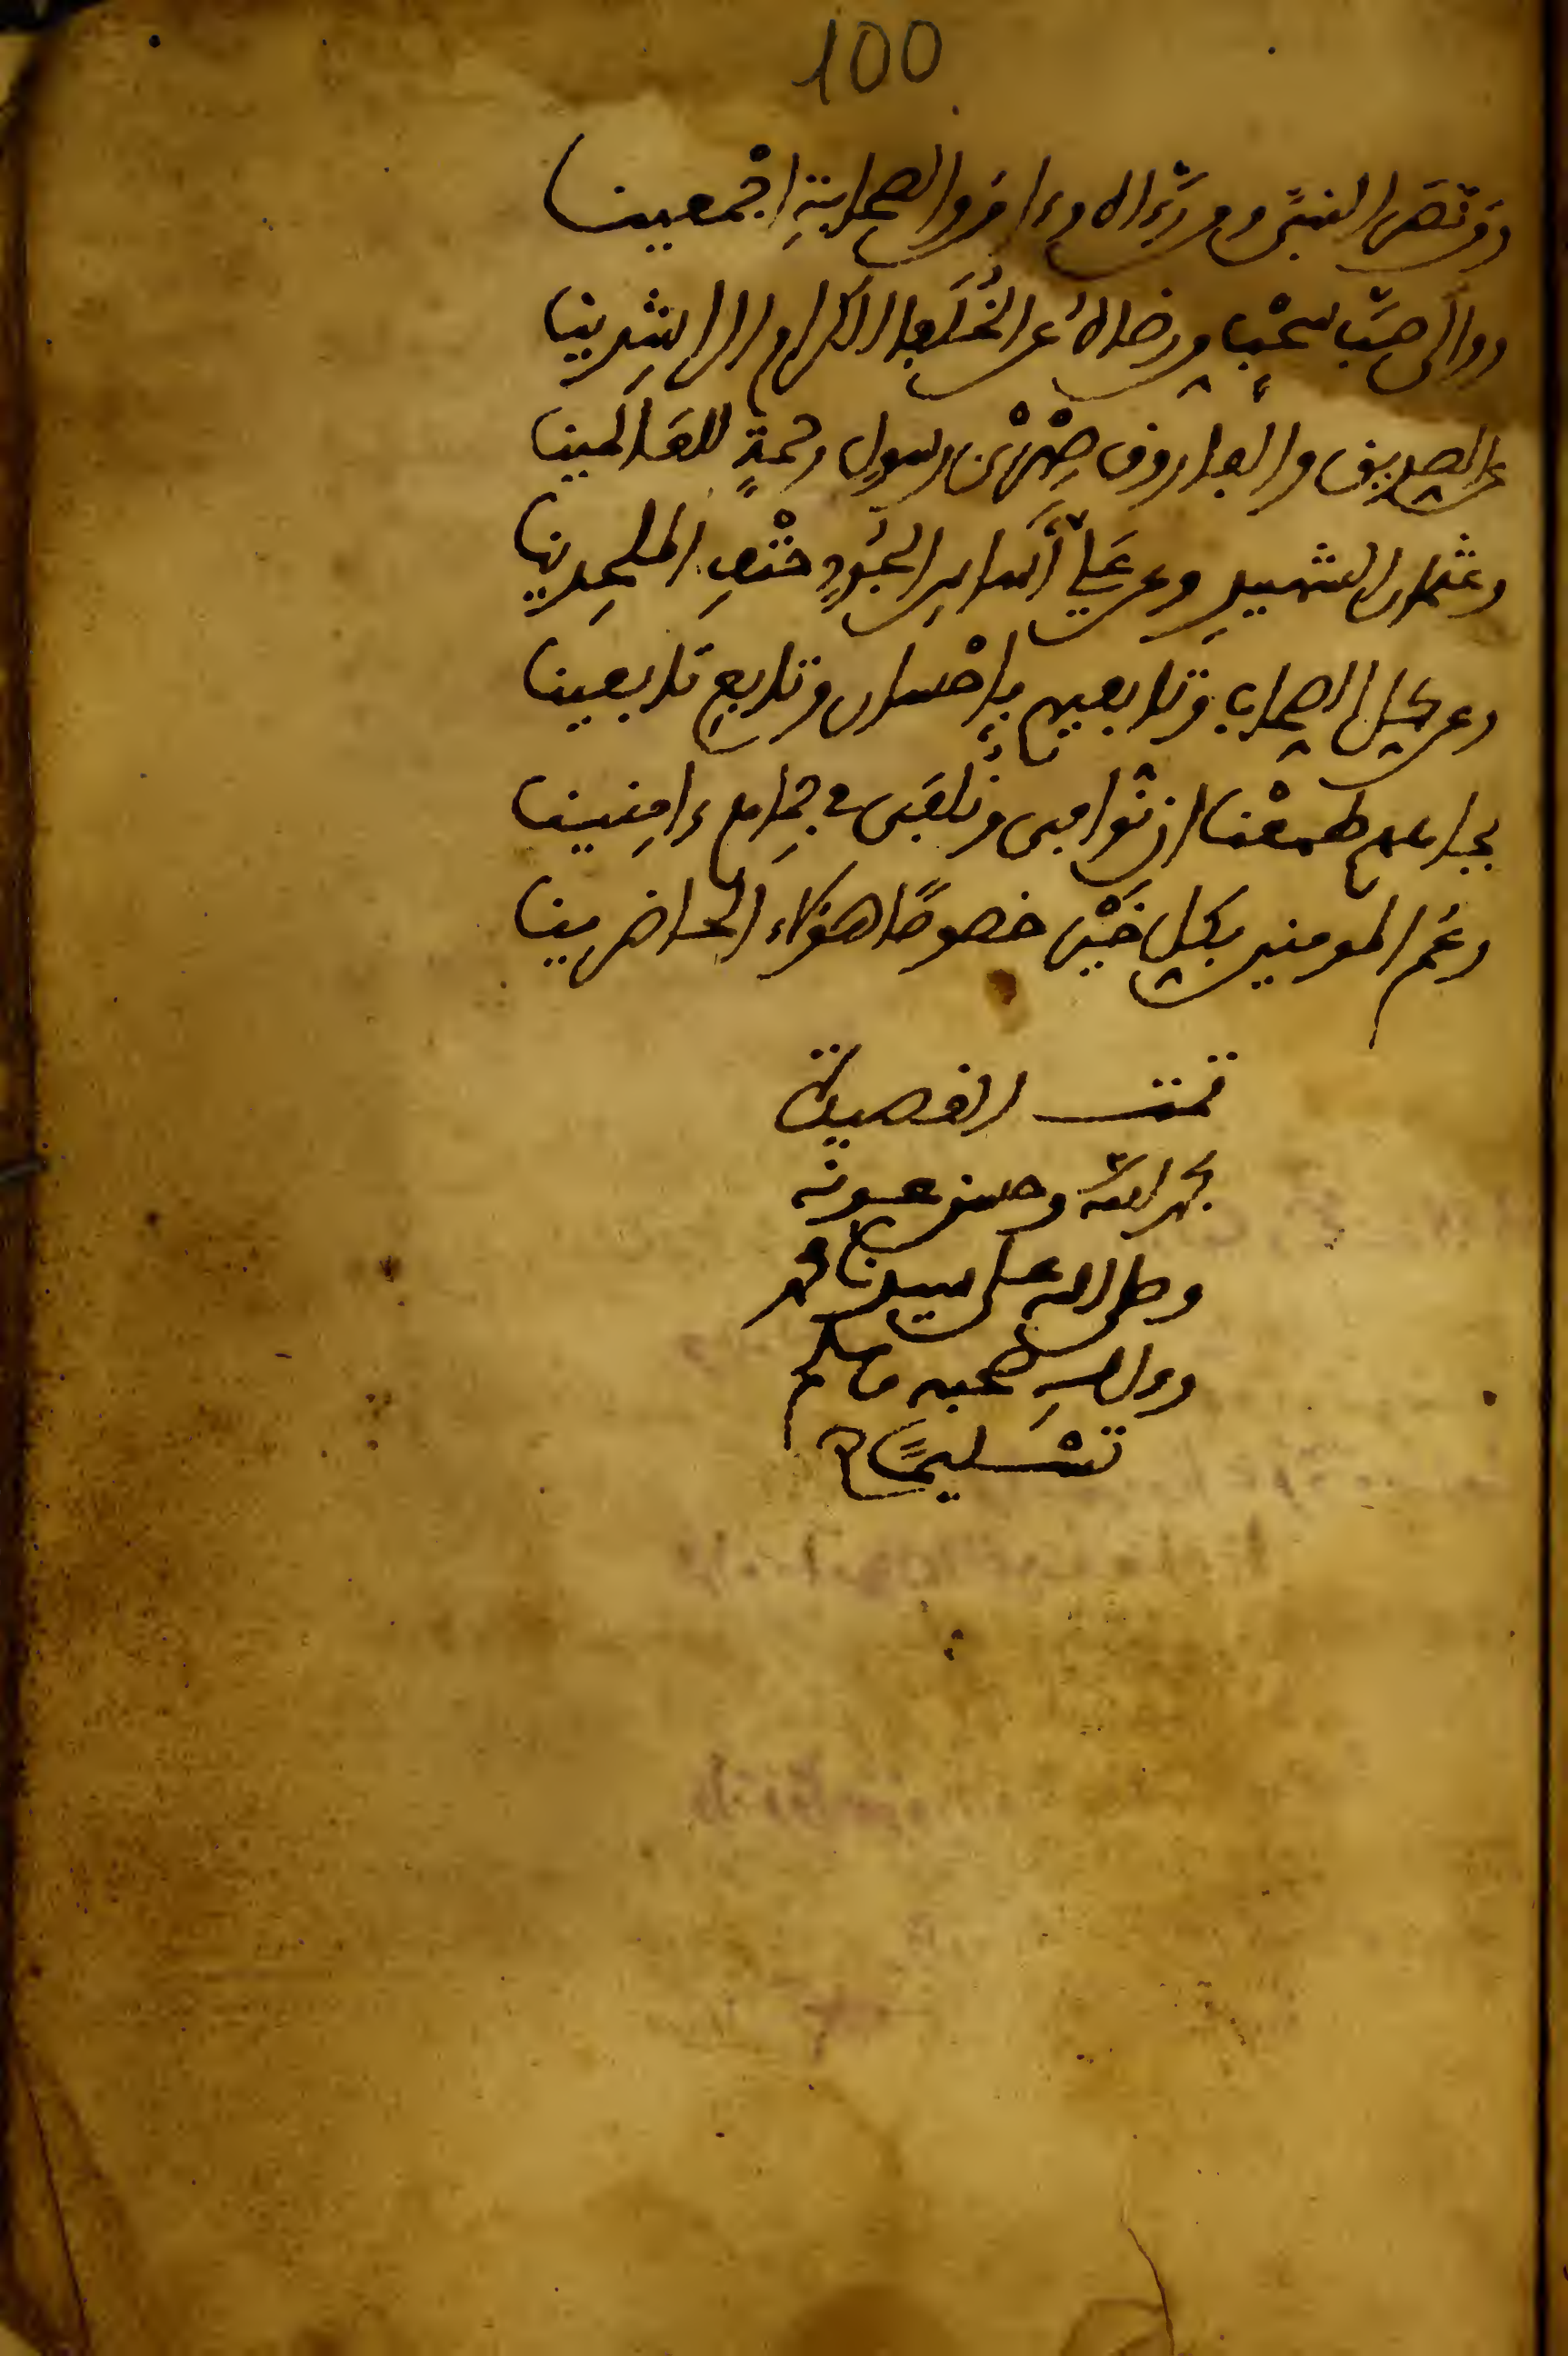 100
النبي وورثه الاوءا والصحابة اجمعينا
ووالى صيب سحب رضاك عن الخلفا الكرام الراشدينا
عن الصديق والفاروق صهري رسول رحمة للعالمينا
وعثمان الشهيد وعن علي اسد حتف الملحدينا
وعن كل الصحاب وتابعيهم باحسان وتابع تابعينا
بجاههم طمعنا ان توافى ونلقى في جامع ءامنينا
وعم المومنين بكل خير خصوصا هؤلاء الحاضرينا
تمت القصيدة
بحمد الله وحسن عونه
وصلى الله على سيدنا محمد
وءاله وصحبه وسلم
تسليما